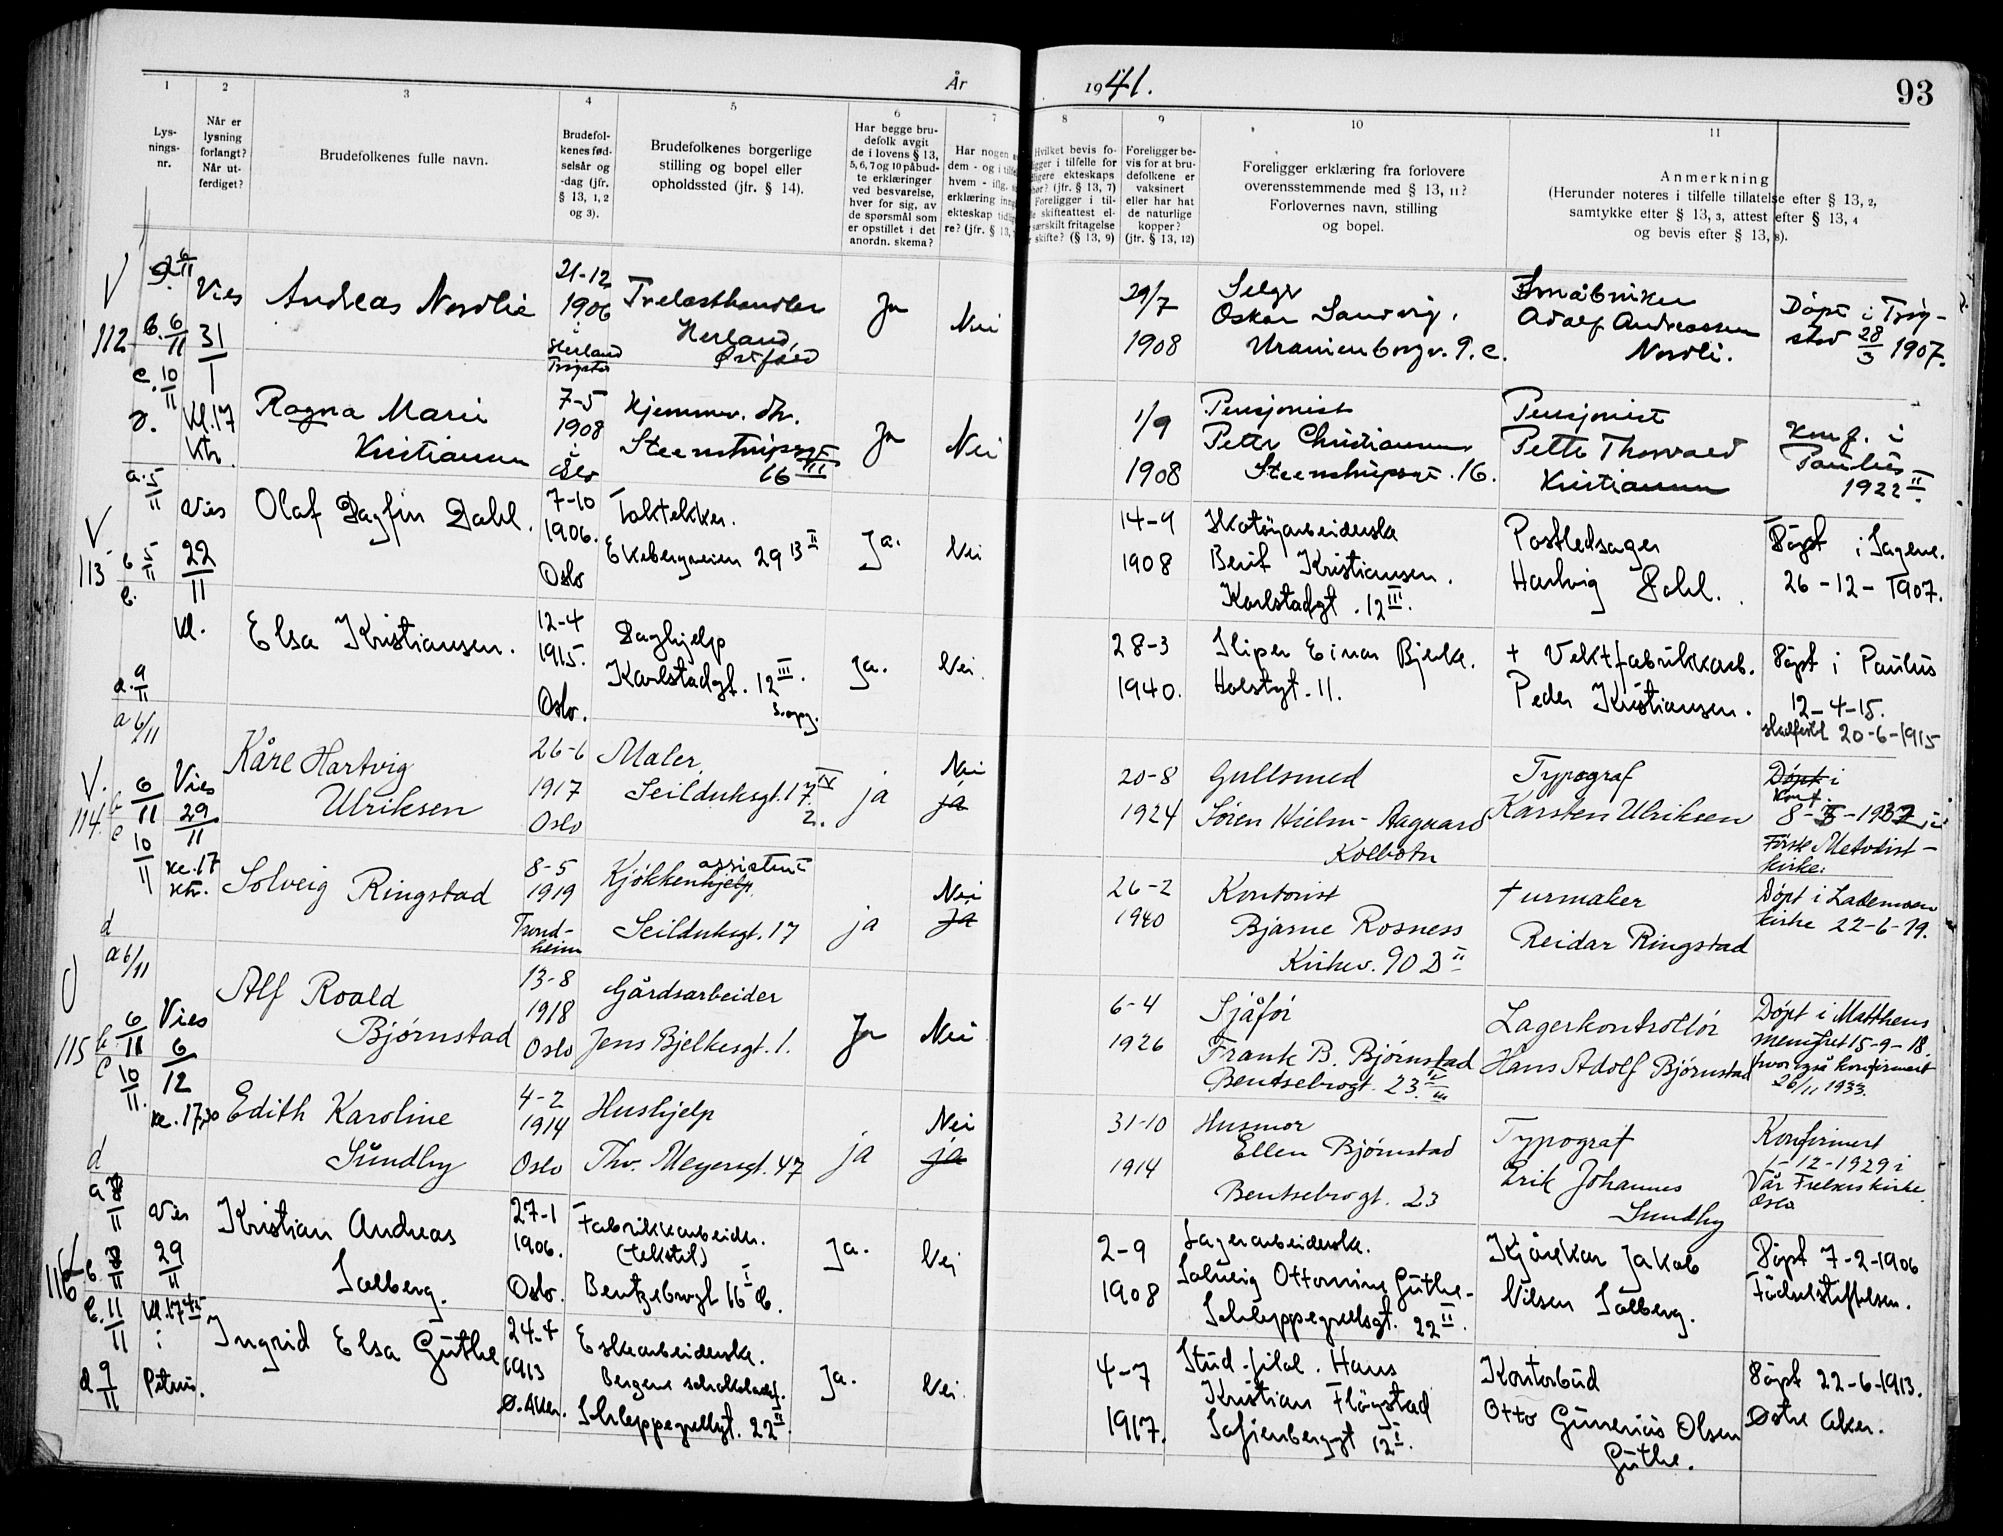 År 1941.
93
1 2 3 4 5 6 7 8 9 10 11
Lys-
nings-
nr.
Når er
lysning
forlangt?
Når ut-
ferdiget?
Brudefolkenes fulle navn.
Brudefol-
kenes fød-
selsår og
-dag (jfr.
§ 13, 1, 2
og 3).
Brudefolkenes borgerlige
stilling og bopel eller
opholdssted (jfr. § 14).
Har begge bru-
defolk avgit
de i lovens § 13,
5, 6, 7 og 10 påbud-
te erklæringer
ved besvarelse,
hver for sig, av
de spørsmål som
er opstillet i det
anordn. skema?
Har nogen
dem - og i
hvem - iflg.
erklæring
ekteskap
re? (jfr. § 13,
Hvilket bevis fo-
i tilfelle for
ekteskaps
(jfr. § 13, 7)
Foreligger i til-
skifteattest el-
særskilt fritagelse
skifte? (§ 13, 9)
Foreligger be-
vis for at bru-
defolkene er
vaksinert
eller har hat
de naturlige
kopper?
(jfr. § 13, 12)
Foreligger erklæring fra forlovere
overensstemmende med § 13, 11?
Forlovernes navn, stilling
og bopel.
Anmerkning
(Herunder noteres i tilfelle tillatelse efter § 13, 2,
samtykke efter § 13, 3, attest efter § 13, 4
og bevis efter § 13, 8).
112
b. 6/11
c. 10/11
Vies
31
1
Kl. 17
Ktr.
Andreas Nordlie
21-12
1906
i
Herland
Trygstad
Trelasthandler
Herland,
Østfold
Ja
Nei
29/7
1908
Selger
Oskar Sandvig.
Uranienborgv. 9. c.
Småbruker
Adolf Andreassen
Nordli.
Døpt i Tryg-
stad 28/3 1907.
Ragna Marie
Kristiansen
7-5
1908
i
Oslo
Hjemmev.
Steenstrupsgt
16 III
Ja
Nei
1/9
1908
Pensjonist
Petter Christiansen
Steenstrupsgt. 16.
Pensjonist
Petter Thorvald
Kristiansen
Konf. i
Paulus
1922 II
113
a. 5/11
b 5/11
c.
d. 9/11
Vies
22
11
Kl.
Olaf Dagfin Dahl.
7-10
1906.
Oslo
Taktekker.
Ekebergveien 29 13 II
Ja.
Nei
14-9
1908
Skotøyarbeiderske
Berit Kristiansen.
Karlstadgt. 12 III.
Postledsager
Hartvig Dahl.
Døpt i Sagene.
26-12-1907.
Elsa Kristiansen.
12-4
1915.
Oslo.
Daghjelp
Karlstadgt. 12 III.
3. opg.
Ja.
Nei.
28-3
1940.
Sliper Einar Bjerke.
Holstgt. 11.
+ Vektfabrikkarb.
Peder Kristiansen.
Døpt i Paulus
12-4-15.
20-6-1915
114.
a 6/11
b 6/11
c 10/11
d
Vies
29
11
Kl. 17
Ktr.
Kåre Hartvig
Ulriksen
26-6
1917
Oslo
Maler,
Seilduksgt. 17 IV
2.
ja
Nei
ja
20-8
1924
Gullsmed
Søren Hielm-Aagaard
Kolbotn
Typograf
Karsten Ulriksen
Døpt i
Konf.
Første Metodist-
kirke.
Solveig Ringstad
8-5
1919
Trond-
heim
assistent
Kjøkkenhjelp.
Seilduksgt. 17
ja
Nei
ja
26-2
1940
Kontorist
Bjarne Rosness
Kirkev. 90 D II
+ urmaker
Reidar Ringstad
Døpt i Lademoen
kirke 22-6-19.
115
a 6/11
b. 6/11
c 10/11.
d
Vies
6
12
Kl. 17,30
Alf Roald
Bjørnstad
13-8
1918
Oslo
Gårdsarbeider
Jens Bjelkesgt. 1.
Ja
Nei
6-4
1926
Sjåfør
Frank B. Bjørnstad
Bentsebrogt. 23. III
Lagerkontrollør
Hans Adolf Bjørnstad
Døpt i Matthæus
menighet 15-9-18.
hvor også konfirmert
26/11 1933.
Edith Karoline
Sundby
4-2
1914
Oslo
Hushjelp
Thv. Meyersgt. 47
ja
Nei
ja
31-10
1914
Husmor
Ellen Bjørnstad
Bentsebrogt. 23
Typograf
Erik Johannes
Sundby
Konfirmert
1-12-1929 i
Vår Frelsers kirke
Oslo
116
c. 11/11
d 9/11
Vies
29
11
Kl. 17 45
i
Petrus.
Kristian Andreas
Solberg.
27-1
1906.
Oslo.
Fabrikkarbeider.
(tekstil)
Bentzebrogt 16 I b.
Ja.
Nei
2-9
1908
Lagerarbeiderske.
Solveig Ottomine Güthe-
Schleppegrellsgt. 22 II.
Kjørekar Jakob
Nilsen Solberg.
Døpt 7-2-1906
Fødselstiftelsen.
Ingrid Elsa Güthe
24-4
1913
Ø. Aker.
Eskearbeiderske.
Bergene schokoladef.
Schleppegrellgt. 22 II.
Ja.
Nei.
4-7
1917.
Stud. filol. Hans
Kristian Fløgstad
Sofienberggt 12 I.
Kontorbud
Otto Gunerius Olsen
Güthe.
Døpt 22-6-1913.
Østre Aker.